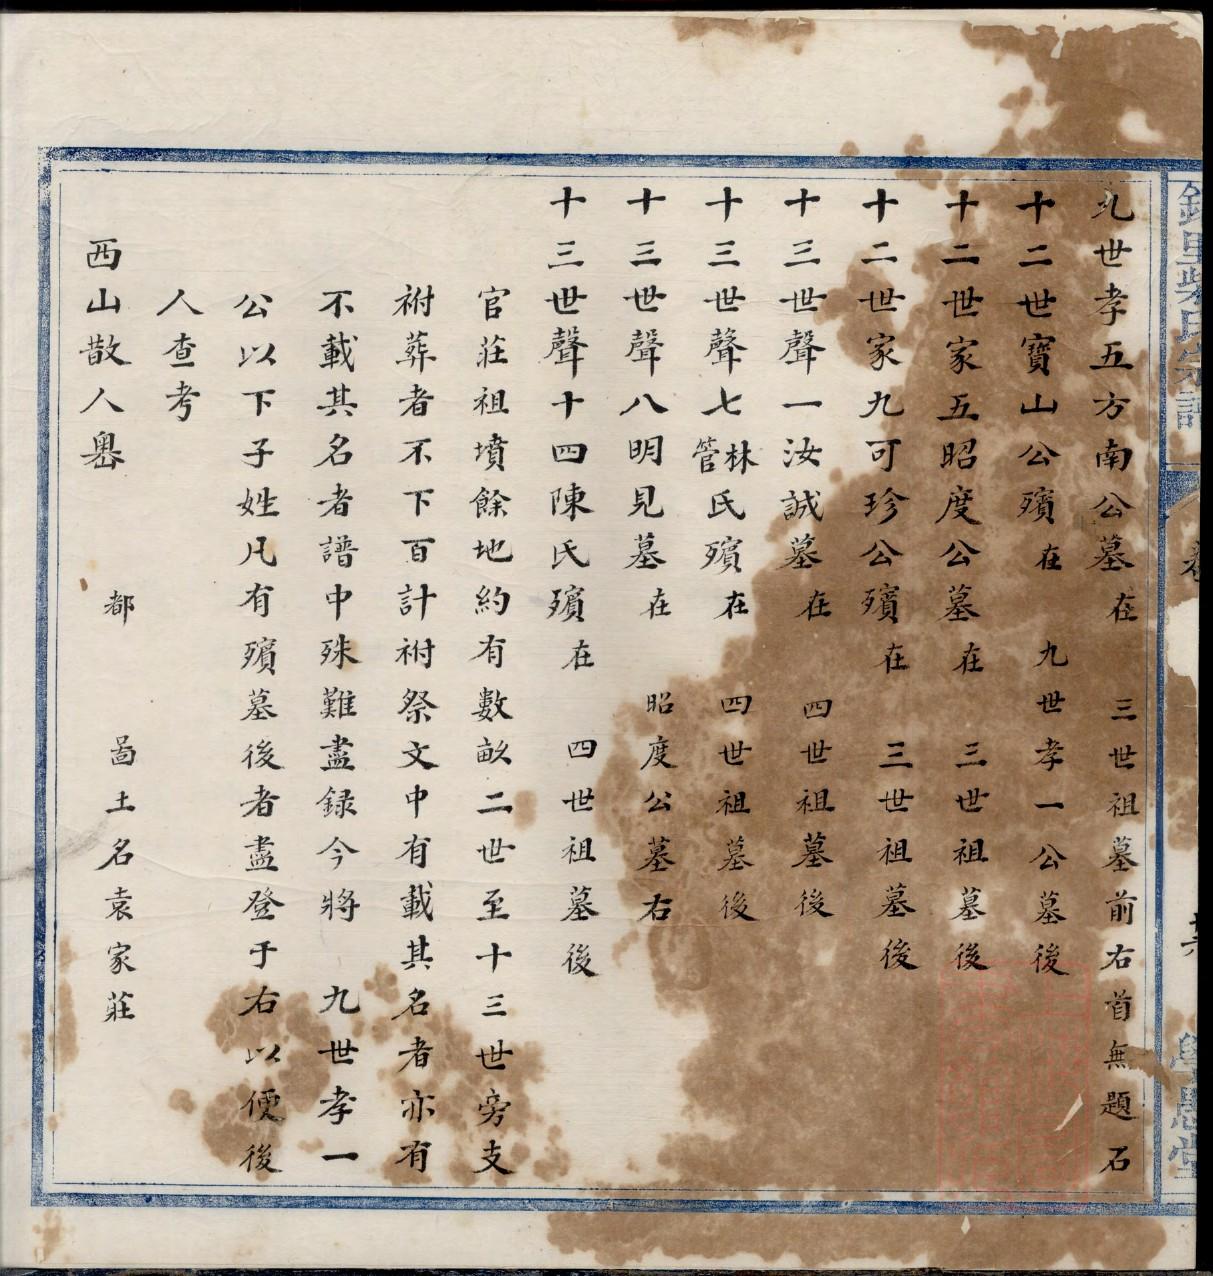 九世孝五方南公墓在 三世祖墓前右首無題石
十二世寶山公殯在 九世孝一公墓後
十二世家五昭度公墓在 三世祖墓後
十二世家九可珍公殯在 三世祖墓後
十三世聲一汝誠墓在 四世祖墓後
十三世聲七林管氏殯在 四世祖墓後
十三世聲八明見墓在 昭度公墓右
十三世聲十四陳氏殯在 四世祖墓後
官莊祖墳餘地約有數畝二世至十三世旁支
祔葬者不下百計祔祭文中有載其名者亦有
不載其名者譜中殊難盡録今將 九世孝一
公以下子姓凡有殯墓後者盡登于右以便後
人查考
西山散人墨 都 啚土名袁家莊
氏宗譜